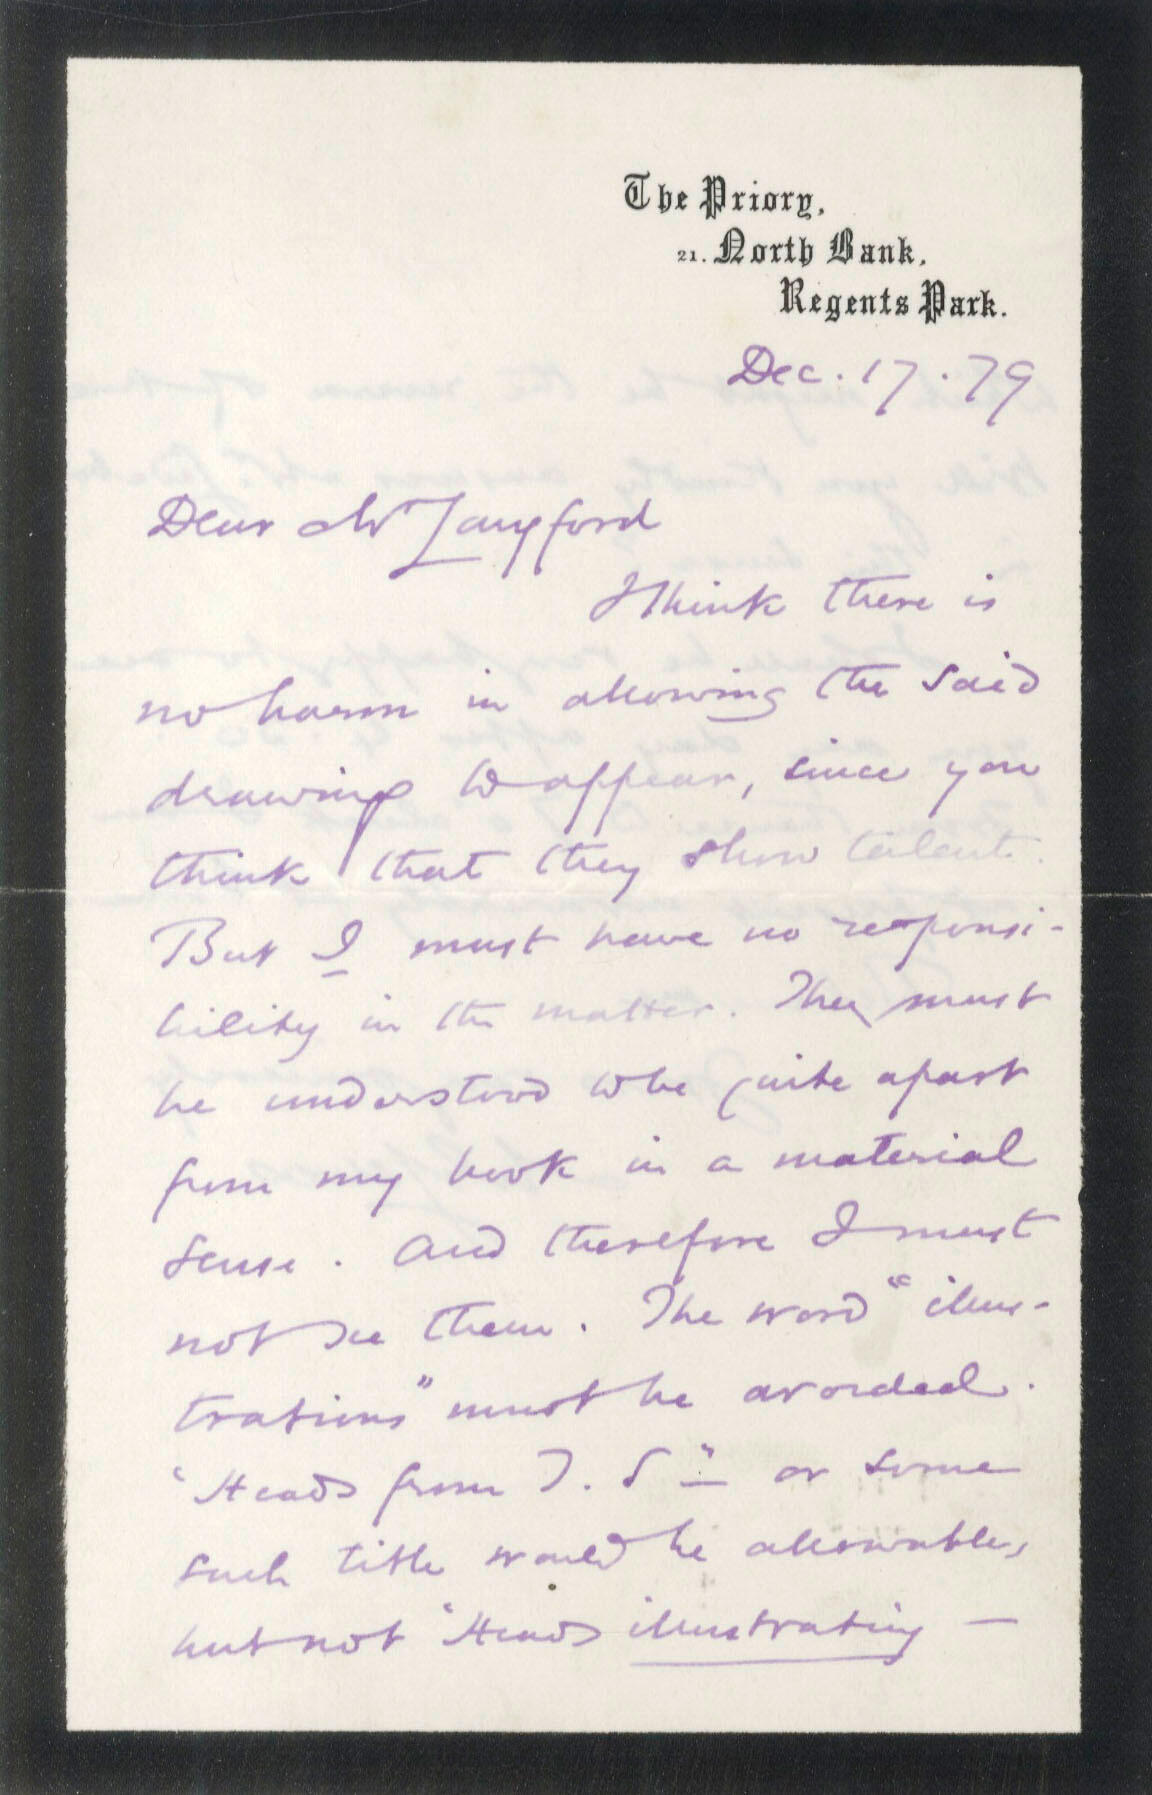 The Priory,
21. North Bank,
Regents Park.
Dec. 17. 79
Dear Mr Langford
I think there is
no harm in allowing the said
drawings to appear, since you
think that they show talent.
But I must have no responsi-
bility in the matter. They must
be understood to be quite apart
from my book in a material
sense. And therefore I must
not see them. The word "illus-
trations" must be avoided.
"Heads from T. S" or some
such title would be allowable,
but not "Heads illustrating —